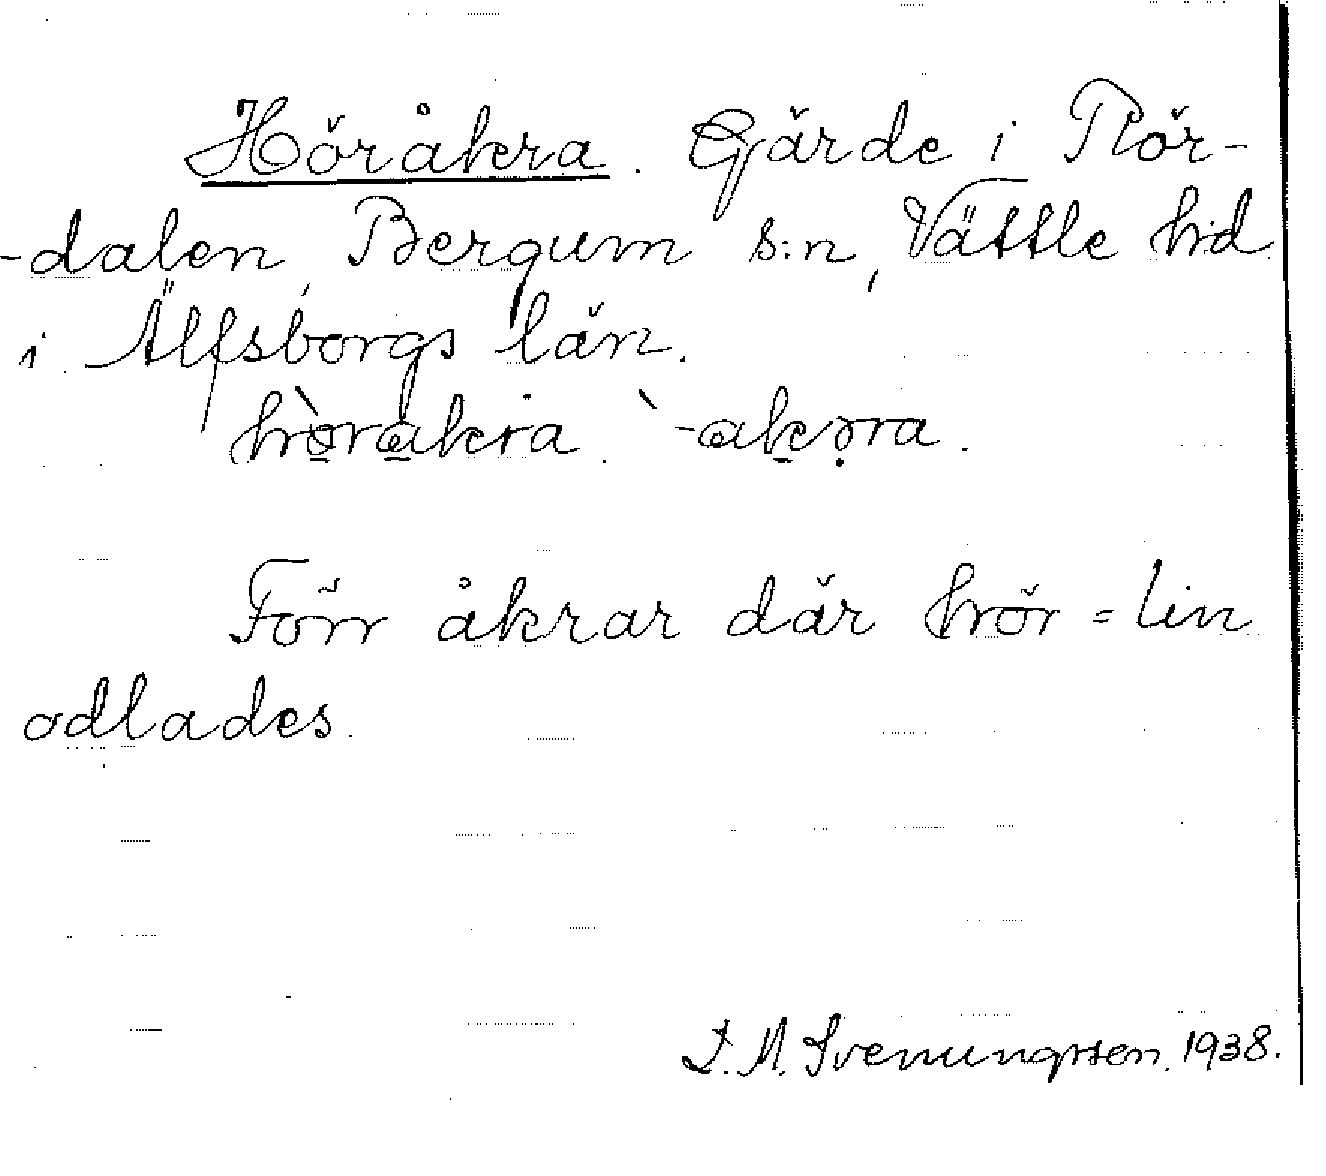 Höråkra. Gärde i Rör-
-dalen, Bergum s:n, Vättle hd
i Älfsborgs län.
hòrakra. `-akərа.
Förr åkrar där hör = lin
odlades.
I. M. Svenungsson. 1938.